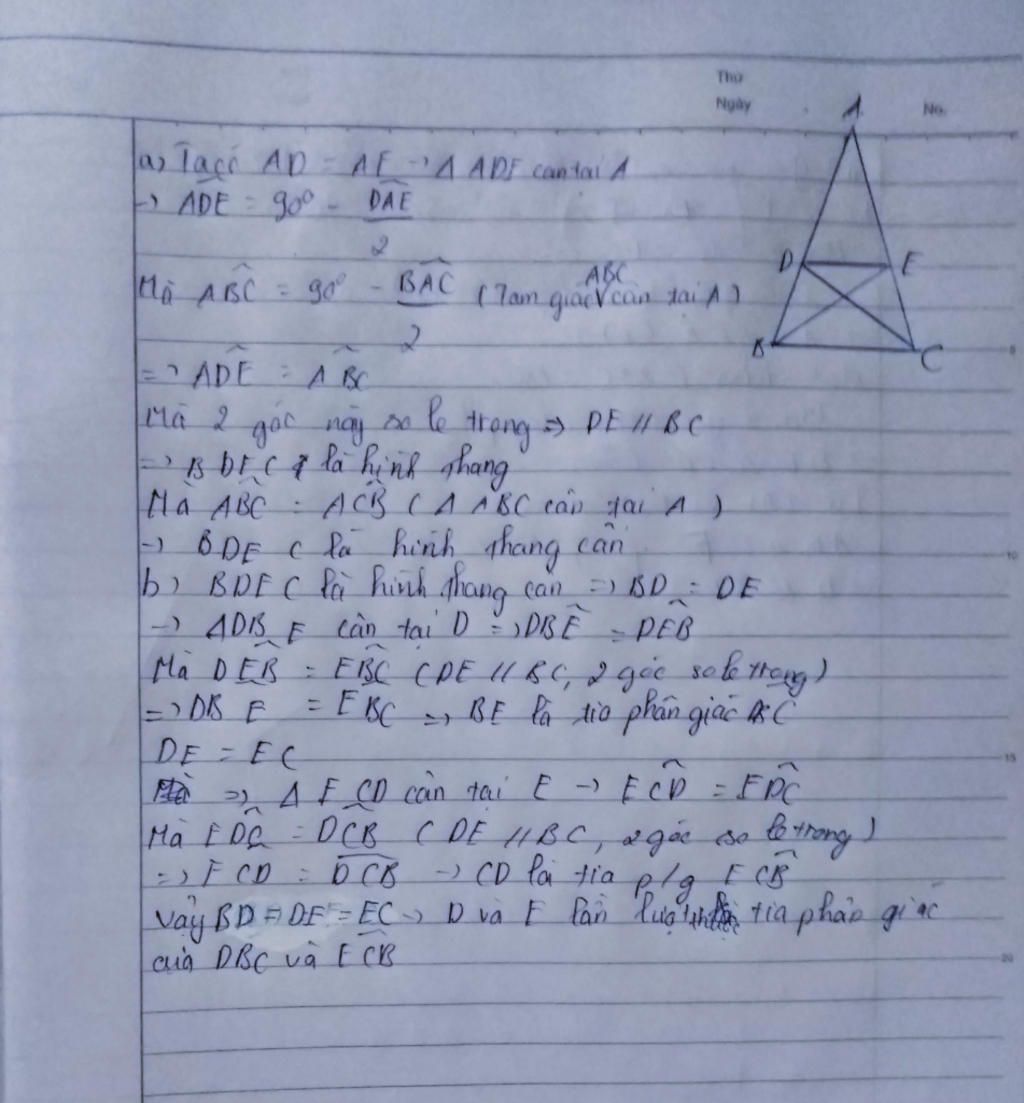 Thứ
Ngày
No.
A
D
E
B
C
a) Ta có AD = AE -> Δ ADE cân tại A
-> ADE = 90° - DAE
2
Mà ABC = 90° - BAC (Tam giác ABC cân tại A)
2
=> ADE = ABC
Mà 2 góc này so le trong => DE // BC
=> BDEC là hình thang
Mà ABC = ACB (Δ ABC cân tại A)
-> BDEC là hình thang cân
b) BDEC là hình thang cân => BD = DE
-> ΔDBE cân tại D => DBE = DEB
Mà DEB = EBC (DE // BC, 2 góc so le trong)
=> DBE = EBC => BE là tia phân giác
DE = EC
=> Δ ECD cân tại E -> ECD = EDC
Mà EDC = DCB (DE // BC, 2 góc so le trong)
=> ECD = DCB -> CD là tia p/g ECB
vậy BD = DE = EC -> D và E lần lượt thuộc tia phân giác
của DBC và ECB
5
10
15
20